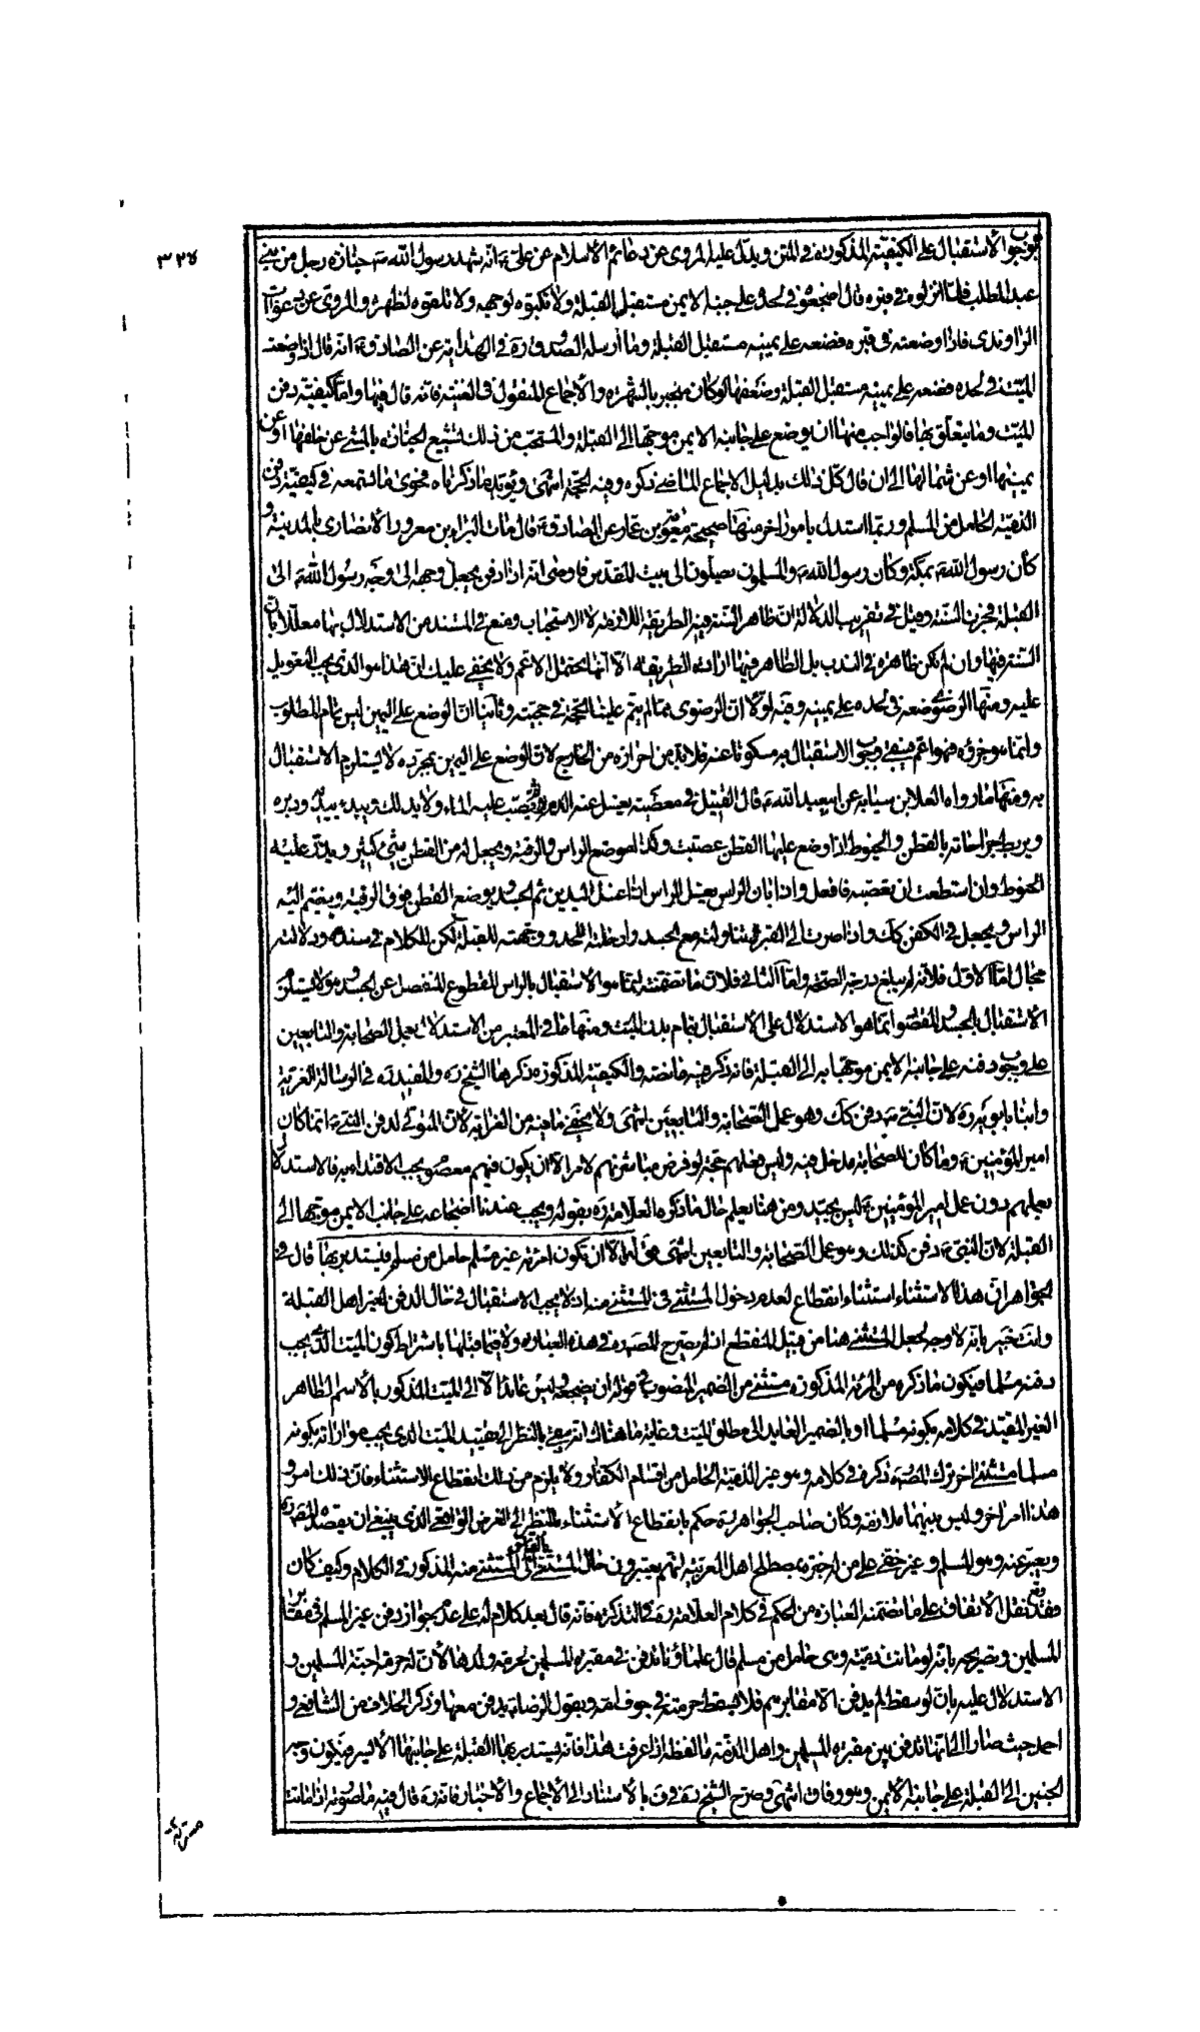 ٣٢٤
بوجوب الاستقبال على الكيفيّة المذكورة فى المتن ويدلّ عليه المروى عن دعائم الاسلام عن علىّ ع انّه شهد رسول الله ص جنازة رجل من بنى
عبد المطلب فلمّا انزلوه فى قبره قال اضجعوه فى لحده على جنبه الايمن مستقبل القبلة ولا تكبّوه لوجهه ولا تلقوه لظهره والمروىّ عن
الراوندى فاذا وضعته فى قبره فضعه على يمينه مستقبل القبلة وما ارسله الصّدوق ره فى الهداية عن الصّادق ع انه قال اذا وضعت
الميّت فى لحده فضعه على يمينه مستقبل القبلة وضعفها لو كان منجبر بالشهرة والاجماع المنقول فى الغنية فانه قال فيها وامّا كيفيّة دفن
الميّت وما يتعلّق بها فالواجب منها ان يوضع على جانبه الايمن موجّها الى القبلة والمستحبّ من ذلك تشييع الجنازة بالمشى عن خلفها او عن
يمينها او عن شمالها الى ان قال كلّ ذلك بدليل الاجماع الماضى ذكره وفيه الحجّة انتهى ويؤيّد ما ذكرناه فحوى ما تسمعه فى كيفيّة دفن
الذميّة الحامل من المسلم وربّما استدل بامور اخر منها صحيحة معوية بن عمّار عن الصادق ع قال مات البراء بن معرور الانصارى بالمدينة و
كان رسول الله ص بمكّة وكان رسول الله ص والمسلمون يصلّون الى بيت المقدس فاوصى انه اذا دفن يجعل وجهه الى وجه رسول الله ص الى
القبلة فجرت السّنّة وقيل فى تقريب الدلالة انّ ظاهر السّنّة فيه الطريقة اللازمة لا الاستحباب ومنع فى المستند من الاستدلال بها معلّلا بانّ
السّنّة فيها وان لم تكن ظاهرة فى الندب بل الظاهر فيها ارادة الطريقة الا انّها تحتمل الاعم ولا يخفى عليك انّ هذا هو الذى يجب التعويل
عليه ومنها الرضوى ضعه فى لحده على يمينه وفيه اوّلا انّ الرضوى ممّا لم يتم علينا الحجّة فى حجيّته وثانيا انّ الوضع على اليمين ليس تمام المطلوب
وانّما هو جزؤه فهو اعم فيبقى وجوب الاستقبال به مسكوتا عنه فلا بدّ من احرازه من الخارج لانّ الوضع على اليمين بمجرّده لا يستلزم الاستقبال
به ومنها ما رواه العلا بن سيابه عن ابى عبد الله ع قال القتيل فى معصية يغسل عنه الدم ثم يصبّ عليه الماء ولا يدلك ويبدء بيديه ودبره
ويربط جراحاته بالقطن والحنوط اذا وضع عليها القطن عصبت وكذا موضع الراس والرقبة ويجعل له من القطن شىء كثير ويذر عليه
الحنوط وان استطعت ان تعصبه فافعل وان بان الراس يغسل الراس اذا غسل اليدين ثم الجسد يوضع القطن فوق الرقبة ويضم اليه
الراس ويجعل فى الكفن كك واذا صرت الى القبر تناولته مع الجسد وادخلته اللحد ووجهته للقبلة لكن للكلام فى سنده ودلالته
مجال امّا الاول فلانّه لم يبلغ درجة الصّحّة وامّا الثانى فلانّ ما تضمنته انّما هو الاستقبال بالراس المقطوع المنفصل عن الجسد وهو لا يستلزم
الاستقبال بالجسد والمقصود انّما هو الاستدلال على الاستقبال بتمام بدن الميّت ومنها ما فى المعتبر من الاستدلال بعمل الصّحابة والتابعين
على وجوب دفنه على جانبه الايمن موجّها به الى القبلة فانه ذكر فيه ما نصّه والكيفيّة المذكورة ذكرها الشّيخ ره والمفيد ره فى الرسالة الغريّة
وابنا بابويه ره لانّ النّبى ص دفن كك وهو عمل الصّحابة والتابعين انتهى ولا يخفى ما فيه من الغرابة لانّ المتولّى لدفن النّبى ص انّما كان
امير المؤمنين ع وما كان للصّحابة مدخل فيه وليس فعلهم حجّة لو فرض مباشرتهم لامر الا ان يكون فيهم معصوم يجب الاقتداء به فالاستدلال
بعملهم دون عمل امير المؤمنين ع ليس بجيّد ومن هنا يعلم حال ما ذكره العلّامة ره بقوله ويجب عندنا اضجاعه على جانب الايمن موجّها الى
القبلة لانّ النّبى ص دفن كذلك وهو عمل الصّحابة والتابعين انتهى قوله الا ان تكون امرئة غير مسلم حامل من مسلم فيستدبر بها قال فى
الجواهر ان هذا الاستثناء استثناء انقطاع لعدم دخول المستثنى فى المستثنى منه اذ لا يجب الاستقبال فى حال الدفن لغير اهل القبلة
وانت خبير بانّه لا وجه لجعل المستثنى هنا من قبيل المنقطع اذ لم يصرّح المصنّف ره فى هذه العبارة ولا فيما قبلها باشتراط كون الميت الّذى يجب
دفنه مسلما فيكون ما ذكره من المرئة المذكورة مستثنى من الضمير المنصوب فى قوله ان يضجعه وليس عائدا الا الى الميّت المذكور بالاسم الظاهر
الغير المقيّد فى كلامه بكونه مسلما او بالضمير العايد الى مطلق الميّت وغاية ما هناك انه يبقى بالنظر الى تقييد الميّت الذى يجب مواراته بكونه
مسلما مستثنى اخر ترك المصنّف ره ذكره فى كلامه وهو غير الذميّة الحامل من اقسام الكفّار ولا يلزم من ذلك انقطاع الاستثناء فان ذلك امر و
هذا امر اخر وليس بينهما ملازمة وكان صاحب الجواهر ره حكم بانقطاع الاستثناء بالنظر الى الغرض الواقعى الذى ينبغى ان يقصده المصنّف ره
ويعبّر عنه وهو المسلم وغير خفىّ على من له خبرة بمصطلح اهل العربيّة انّهم يعتبرون حال المستثنى بالقياس الى المستثنى منه المذكور فى الكلام وكيف كان
فقد وقع نقل الاتفاق على ما تضمنته العبارة من الحكم فى كلام العلامة ره فى التذكرة فانه قال بعد كلام له على عدم جواز دفن غير المسلم فى مقابر
المسلمين وتصريحه بانّه لو ماتت ذميّة وهى حامل من مسلم قال علماؤنا تدفن فى مقبرة المسلمين لحرمة ولدها لانّ له حرمة اجنّة المسلمين و
الاستدلال عليه بانّ لو سقط لم يدفن الا فى مقابرهم فلا يسقط حرمته فى جوف امّه وبقول الرضا ع يدفن معها وذكر الخلاف من الشافعى و
احمد حيث صارا الى انّها تدفن بين مقبرة المسلمين واهل الذمّة ما لفظه اذا عرفت هذا فانّه يستدبر بها القبلة على جانبها الايسر ليكون وجه
الجنين الى القبلة على جانبه الايمن وهو وفاق انتهى وصرّح الشّيخ ره فى ف بالاستناد الى الاجماع والاخبار فانّه ره قال فيه ما صورته اذا ماتت